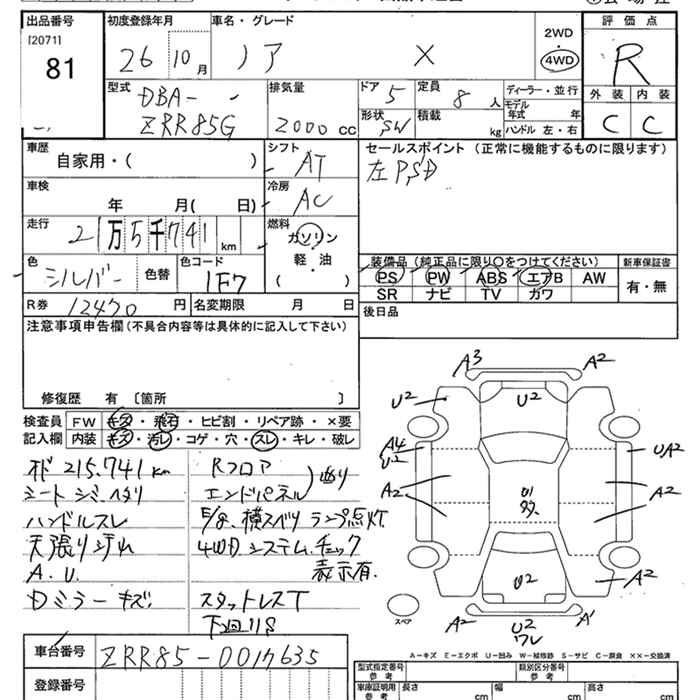 出品番号
[2071]
81
初度登録年月
26 10月
車名・グレード
ノア X
2WD
4WD
評価点
R
外装 内装
C C
型式
DBA-
ZRR85G
排気量
2000 cc
ドア 5
形状 SW
定員 8 人
積載 kg
ディーラー・並行
モデル年式 年
ハンドル 左・右
車歴
自家用・( )
シフト
AT
セールスポイント (正常に機能するものに限ります)
左PSD
車検
年 月( 日)
冷房
AC
走行
21万5千741 km
燃料
ガソリン
軽・油
( )
色
シルバー
色替
色コード
1F7
装備品 (純正品に限り○をつけてください)
PS PW ABS エアB AW
SR ナビ TV カワ
新車保証書
有・無
R券 12470 円
名変期限 月 日
後日品
注意事項申告欄(不具合内容等は具体的に記入して下さい)
修復歴 有 〔箇所 〕
検査員記入欄
FW キズ・飛石・ヒビ割・リペア跡・×要
内装 キズ・汚レ・コゲ・穴・スレ・キレ・破レ
215,741 km
シート シミ、ヘタリ
ハンドルスレ
天張り汚れ
A.U.
Dミラーキズ
Rフロア
エンドパネル
横スベリ ランプ点灯
4WDシステム、チェック
表示有.
スタットレスT
下廻りS
A3
A2
U2
U2
A4
U2
UA2
A2
A2
U2
A2
A2
U2
ワレ
A1
スペア
A－キズ E－エクボ U－凹み W－補修跡 S－サビ C－腐食 ××－交換済
車台番号
ZRR85-0017635
登録番号
型式指定番号
参考
類別区分番号
参考
車庫証明用
参考
長さ cm
幅 cm
高さ cm